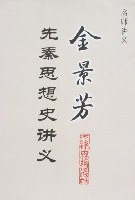 名师讲义
金景芳
先秦思想史讲义